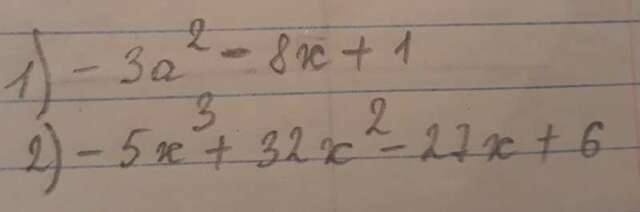 1) - 3a² - 8x + 1
2) - 5x³ + 32x² - 27x + 6